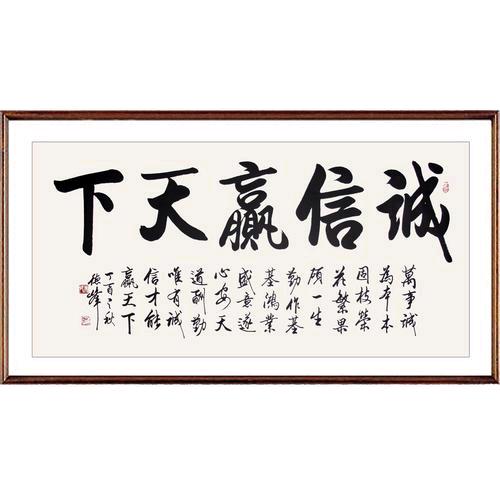 誠信贏天下
萬事誠
為本本
固枝榮
花繁果
碩一生
勤作基
基鴻業
盛意遂
心安天
道酬勤
唯有誠
信才能
贏天下
丁酉之秋
德峰